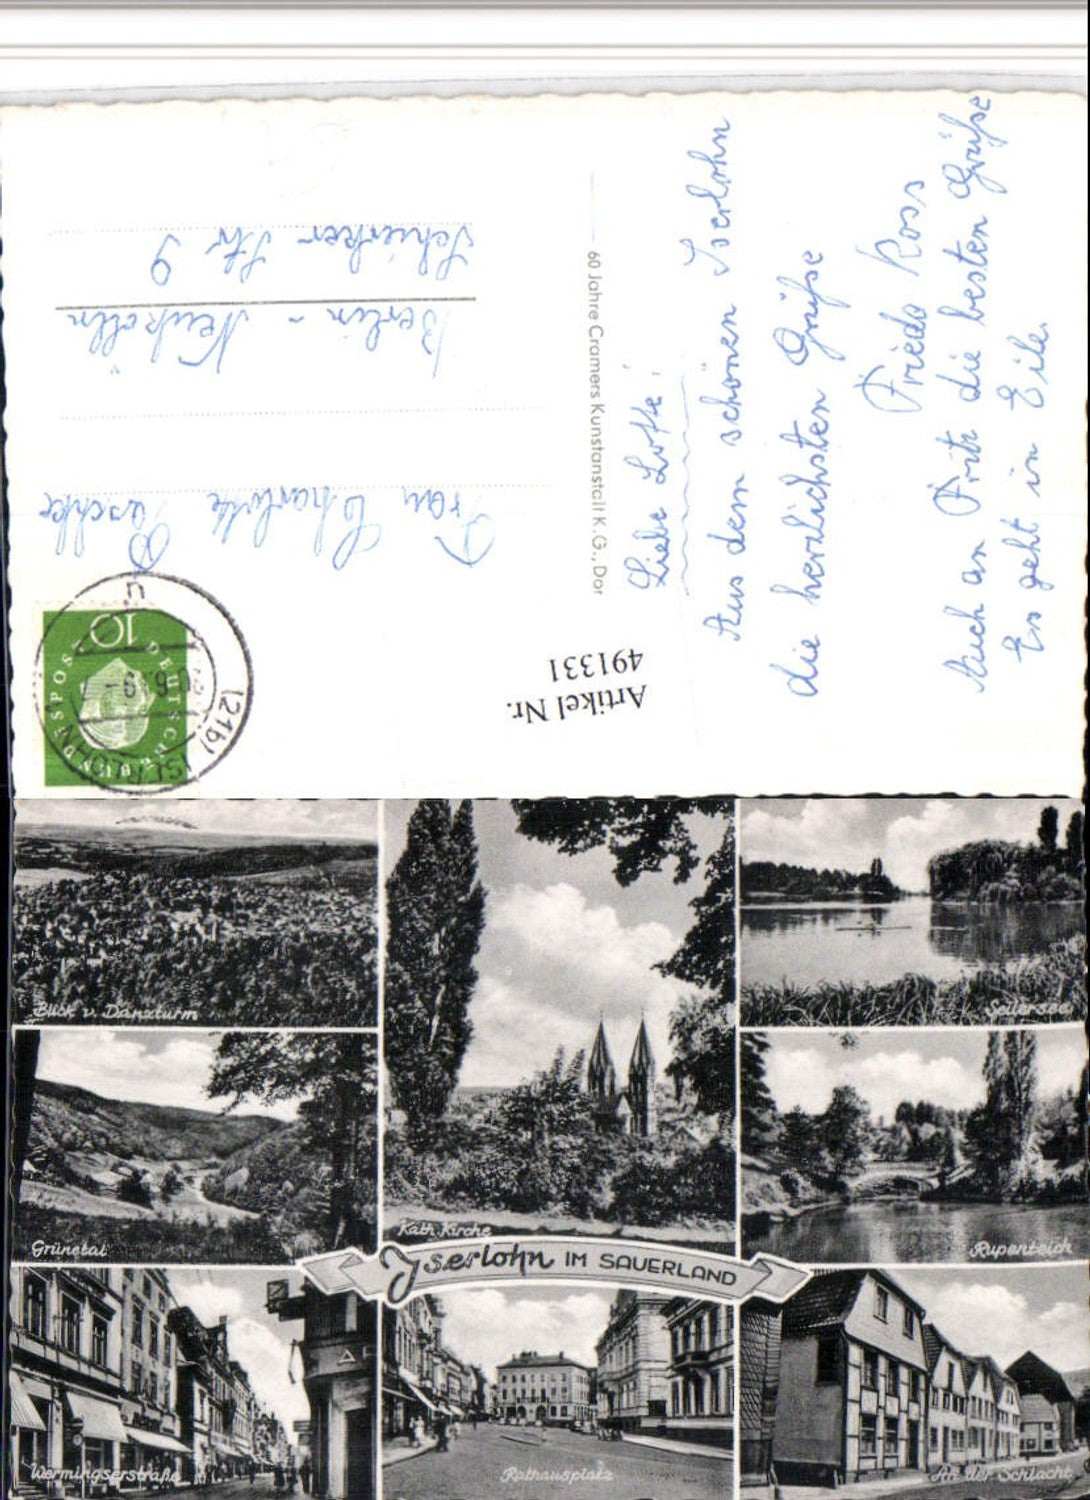 Liebe Lotte!
Aus dem schönen Iserlohn
die herzlichsten Grüße
Frieda Koss
Auch an Fritz die besten Grüße
Es geht in Eile.
60 Jahre Cramers Kunstanstalt K.G., Dor
Frau Charlotte Paschke
Berlin - Neukölln
Schierker Str 9
Artikel Nr.
491331
10
DEUTSCHE BUNDESPOST
(21b) ISERLOHN
Blick v. Danzturm
Seilersee
Grünetal
Kath. Kirche
Rupenteich
Iserlohn IM SAUERLAND
Wermingserstraße
Rathausplatz
An der Schlacht